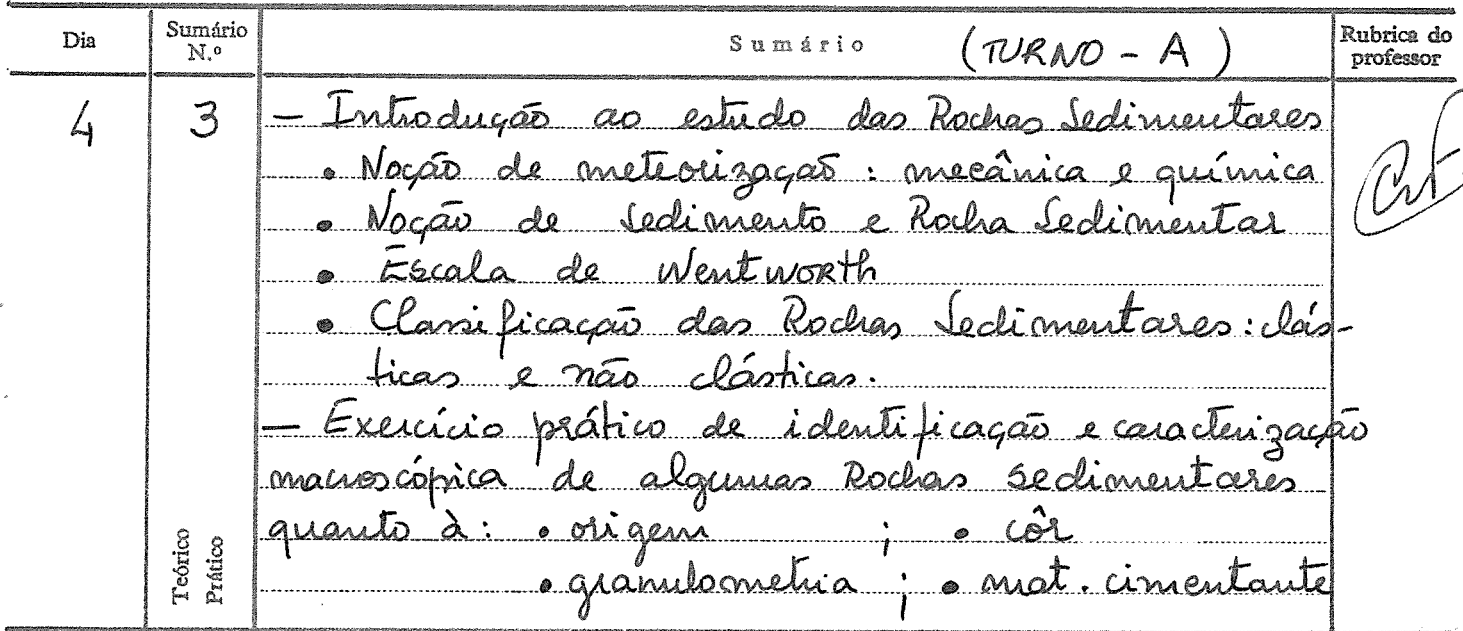 Dia
Sumário N.º
Sumário (TURNO - A)
Rubrica do professor
4
3
— Introdução ao estudo das Rochas Sedimentares
• Noção de meteorização : mecânica e química
• Noção de sedimento e Rocha Sedimentar
• Escala de Wentworth
• Classificação das Rochas Sedimentares: clás-
ticas e não clásticas.
— Exercício prático de identificação e caracterização
macroscópica de algumas Rochas Sedimentares
quanto à: • origem ; • côr
• granulometria ; • mat. cimentante
Teórico
Prático